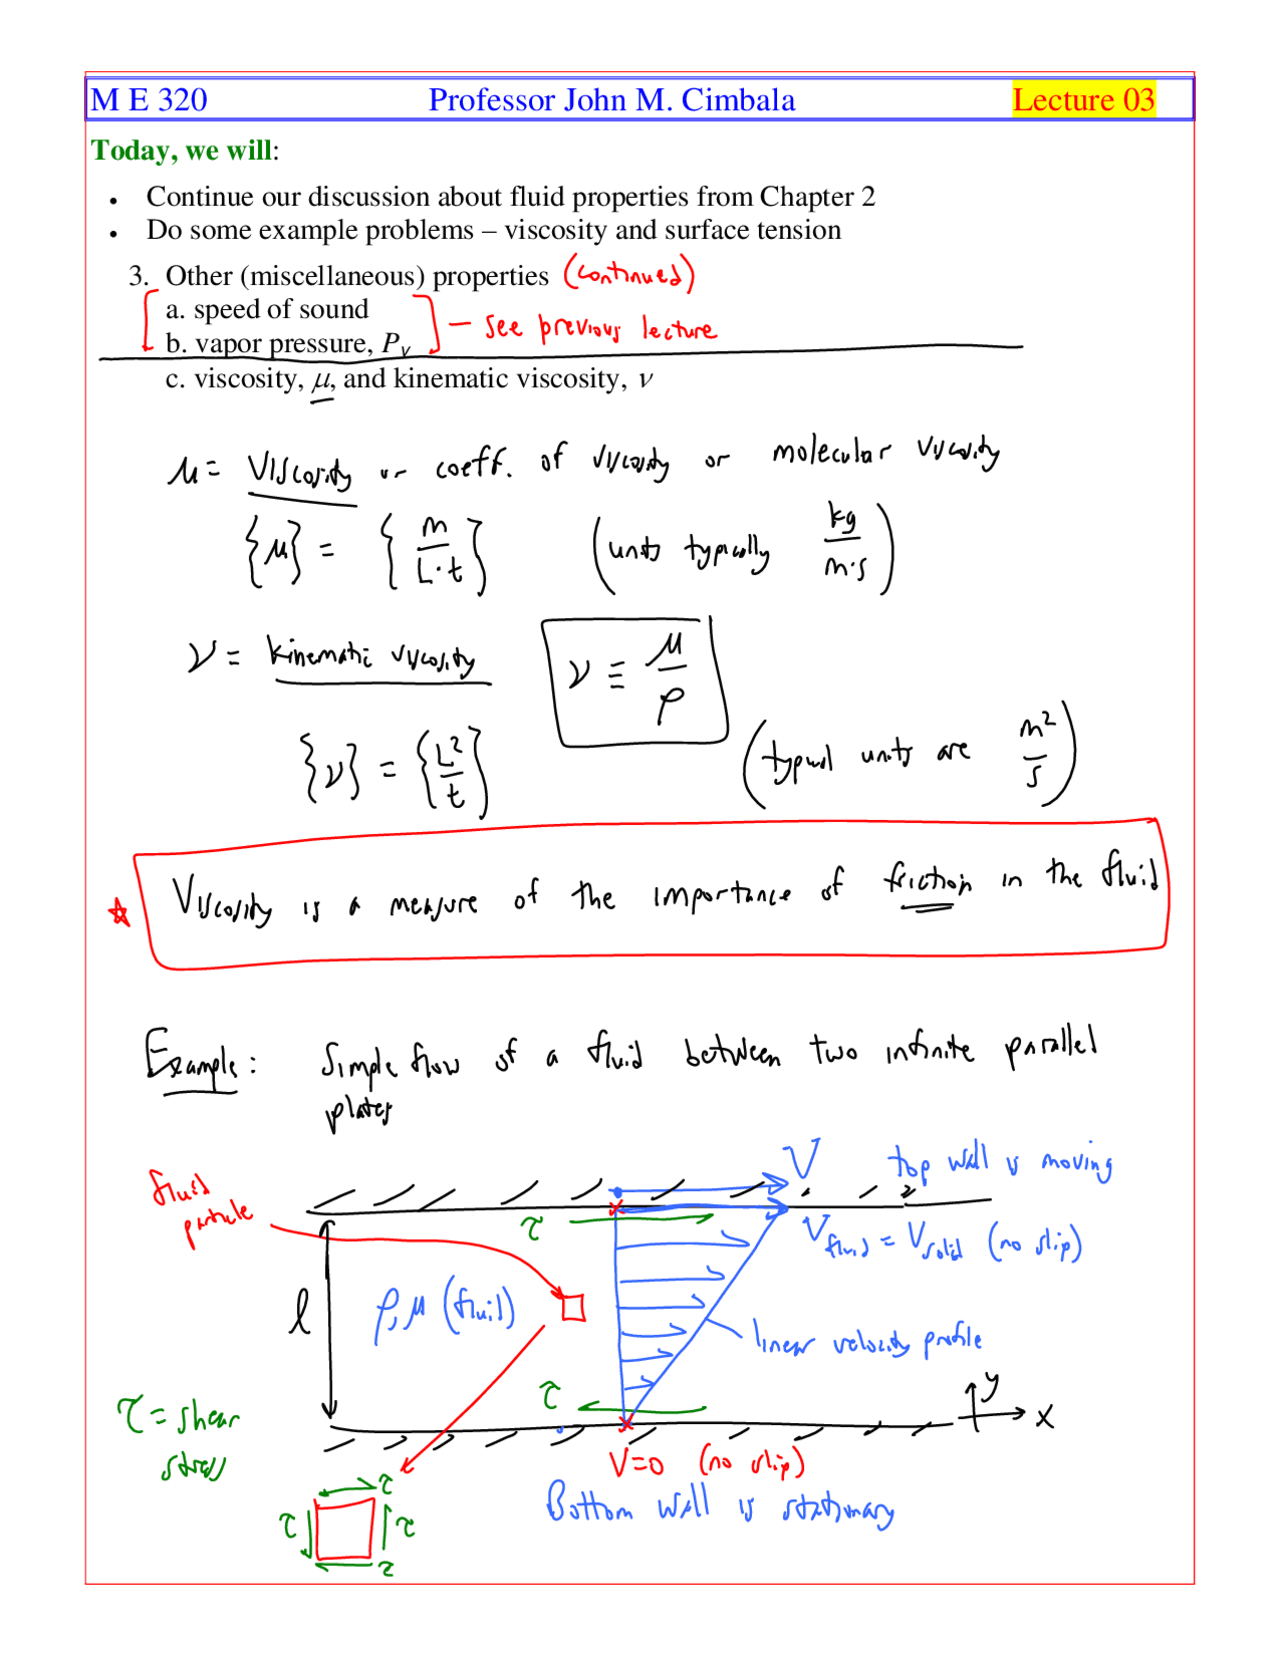 M E 320 Professor John M. Cimbala Lecture 03
Today, we will:
• Continue our discussion about fluid properties from Chapter 2
• Do some example problems – viscosity and surface tension
3. Other (miscellaneous) properties (continued)
a. speed of sound
b. vapor pressure, Pv
— see previous lecture
c. viscosity, μ, and kinematic viscosity, ν
μ = Viscosity or coeff. of viscosity or molecular viscosity
{μ} = {m / L·t} (units typically kg / m·s)
ν = kinematic viscosity ν ≡ μ / ρ
{ν} = {L² / t} (typical units are m² / s)
☆ Viscosity is a measure of the importance of friction in the fluid
Example: Simple flow of a fluid between two infinite parallel
plates
V top wall is moving
fluid
particle
τ V fluid = V solid (no slip)
l ρ, μ (fluid)
linear velocity profile
τ y
x
τ = shear
stress
V=0 (no slip)
Bottom wall is stationary
τ
τ τ
τ